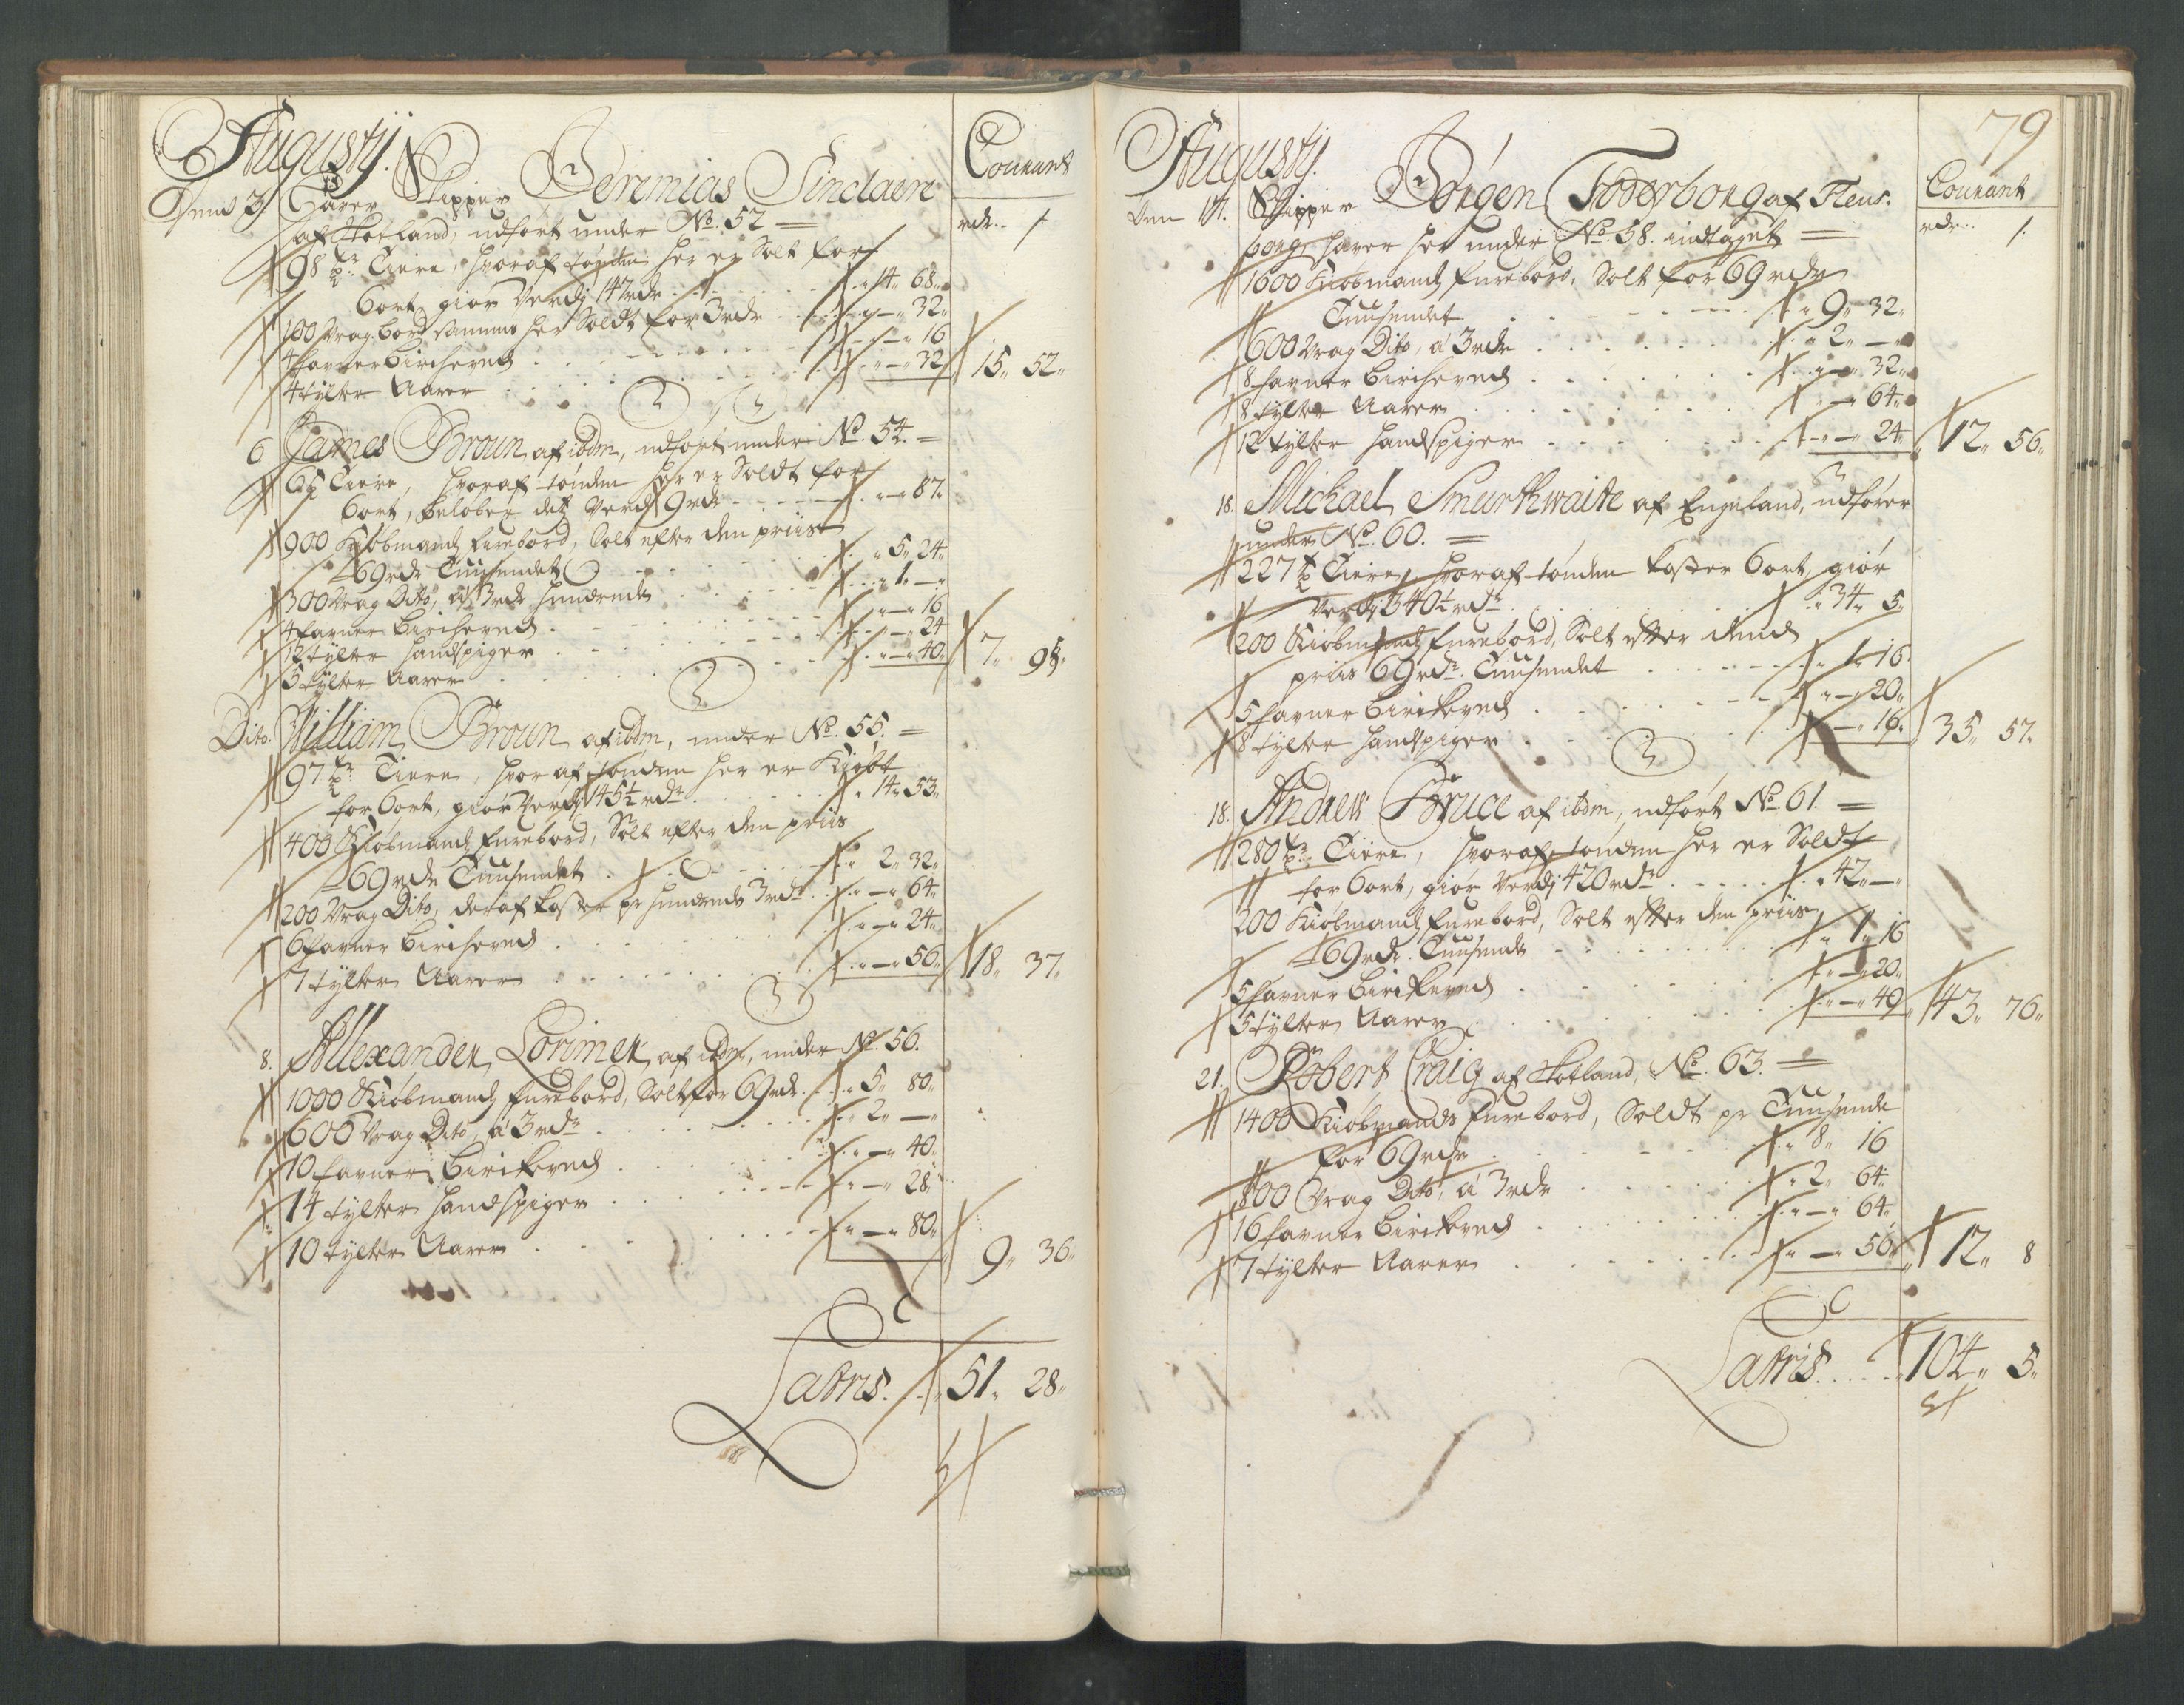 Augustj.
Courant
Dend 3 Haver Skipper Jeremias Sinclaire
rdr. ß.
af Skotland, udført under No. 52 =
98 Tiere, hvoraf tønden her er Solt for
6ort, giør Verdj 147rdr . . 14 „ 68 „
100 Vrag bord samme her Soldt for 3rdr . . „ — „ 32 „
4 favner birkeved . . „ — „ 16
4 tylter Aarer . . „ — „ 32 15 „ 52 „
6 James Broun af ibdm, udført under No. 54. =
6½ Tiere, hvoraf tønden her er Soldt for
6ort, beløber det Verdj 9rdr . . „ — „ 87 „
900 Kiøbmands furebord, Solt efter den priis
69rdr Tuusendet . . 5 „ 24 „
300 Vrag Dito, á 3rdr hundrede . . 1 „ — „
4 favner birkeved . . „ — „ 16
12 tylter handspiger . . „ — „ 24
5 tylter Aarer . . „ — „ 40 „ 7 „ 95 „
Dito. William Broun af ibdm, under No. 55. =
97 Tiere, hvoraf tønden her er Kiøbt
for 6ort, giør Verdj 145½ rdr . . 14 „ 53 „
400 Kiøbmands furebord, Solt efter den priis
69rdr Tuusendet . . 2 „ 32 „
200 Vrag Dito, deraf koster pr hundrede 3rdr . . „ — „ 64 „
6 favner birkeved . . „ — „ 24 „
7 tylter Aarer . . „ — „ 56 „ 18 „ 37 „
8. Allexander Lorimer af ibdm, under No. 56.
1000 Kiøbmands furebord, Solt for 69rdr . . 5 „ 80 „
600 Vrag Dito, á 3rdr . . 2 „ — „
10 favner birkeved . . „ — „ 40 „
14 tylter handspiger . . „ — „ 28 „
10 tylter Aarer . . „ — „ 80 „ 9 „ 36 „
Latris . . 51 „ 28 „
79
Augustj.
Courant
Den 14. Skipper Jørgen Foderborg af Flens-
rdr. ß.
borg haver her under No. 58. indtaget =
1600 Kiøbmands furebord, Solt for 69 rdr
Tuusendet . . 9 „ 32 „
600 Vrag Dito, á 3rdr . . 2 „ — „
8 favner birkeved . . „ — „ 32 „
8 tylter Aarer . . „ — „ 64 „
12 tylter handspiger . . „ — „ 24 „ 12 „ 56 „
18. Michael Smurthwaite af Engeland, udfører
under No. 60. =
227 Tiere, hvoraf tønden koster 6ort, giør
Verdj 340½ rdr . . 34 „ 5 „
200 Kiøbmands furebord, Solt efter dend
priis 69rdr. Tuusendet . . 1 „ 16 „
5 favner birkeved . . „ — „ 20 „
8 tylter handspiger . . „ — „ 16 „ 35 „ 57 „
18. Andrew Bruce af ibdm, udført No. 61. =
280 Tiere, hvoraf tønden her er Soldt
for 6ort, giør Verdj 420rdr . . 42 „ — „
200 Kiøbmands furebord, Solt efter den priis
69rdr. Tuusende . . 1 „ 16
5 favner birkeved . . „ — „ 20 „
5 tylter Aarer . . „ — „ 40 43 „ 76 „
21. Robert Craig af Skotland, No. 63. =
1400 Kiøbmands furebord, Soldt pr Tuusende
for 69rdr . . 8 „ 16
800 Vrag Dito, á 3rdr . . 2 „ 64 „
16 favner birkeved . . „ — „ 64 „
7 tylter Aarer . . „ — „ 56 „ 12 „ 8
Latris . . . . 104 „ 5 „